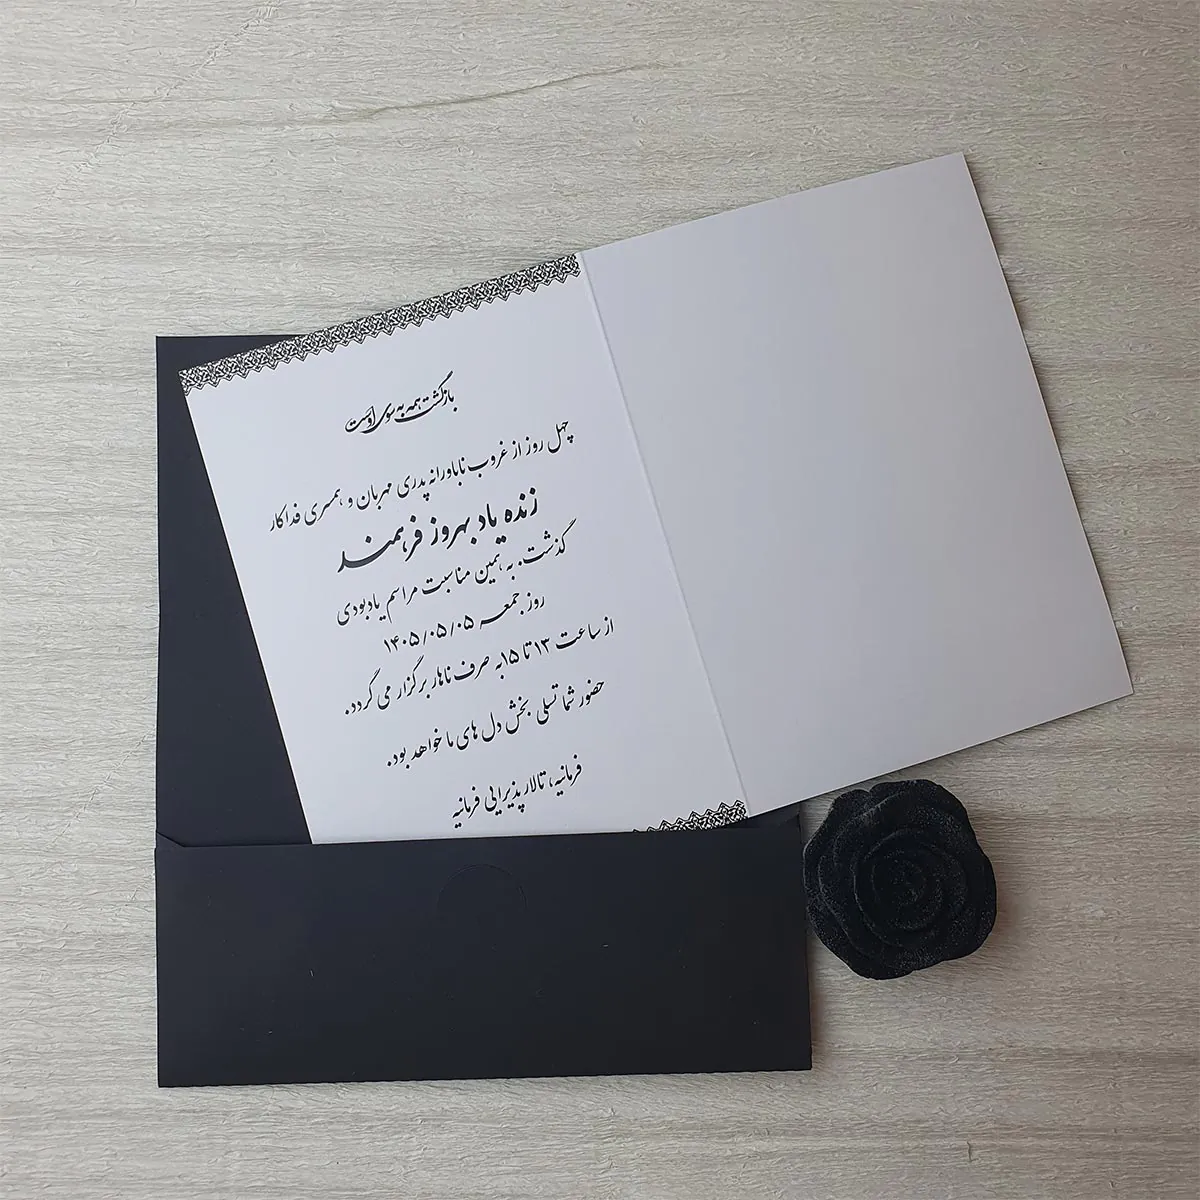 بازگشت همه به سوی اوست
چهل روز از غروب ناباورانه پدری مهربان و همسری فداکار
زنده یاد بهروز فرهمند
گذشت. به همین مناسبت مراسم یادبودی
روز جمعه ۱۴۰۵/۰۵/۰۵
از ساعت ۱۳ تا ۱۵ به صرف ناهار برگزار می گردد.
حضور شما تسلی بخش دل های ما خواهد بود.
فرمانیه، تالار پذیرایی فرمانیه